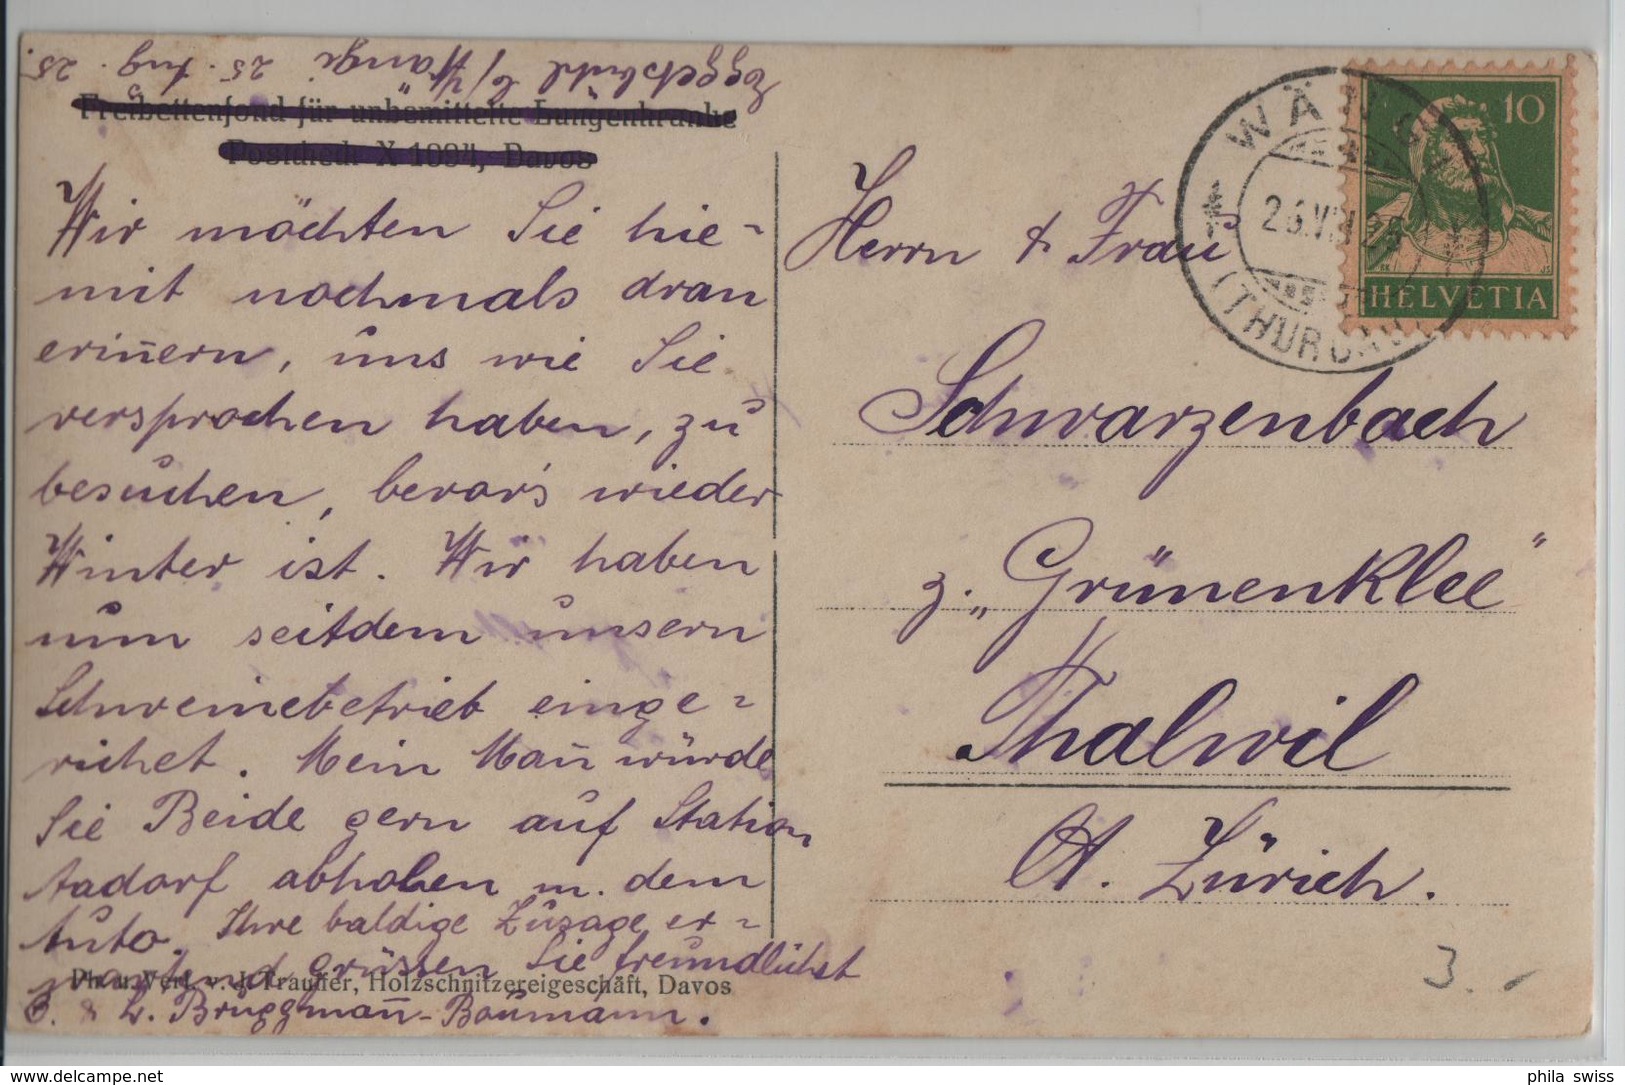 b/Wängi 25. Aug. 25.
Freibettenfond für unbemittelte Lungenkranke
Postcheck X 1094, Davos
Wir möchten Sie hie-
mit nochmals dran
erin̄ern, uns wie Sie
versprochen haben, zu
besuchen, bevor's wieder
Winter ist. Wir haben
nun seitdem unsern
Schweinebetrieb einge-
richet. Mein Man̄ würde
Sie Beide gern auf Station
Aadorf abholen m. dem
Auto. Ihre baldige Zusage er-
wartend, grüssen Sie freundlichst
Ph. u. Verl. v. J. Trauffer, Holzschnitzereigeschäft, Davos
& L. Brüggman̄-Baumann.
WÄNGI
26.VIII.25
(THURGAU)
10
HELVETIA
Herrn & Frau
Schwarzenbach
z. „Grünenklee"
Thalwil
Ct. Zürich.
3.
phila swiss